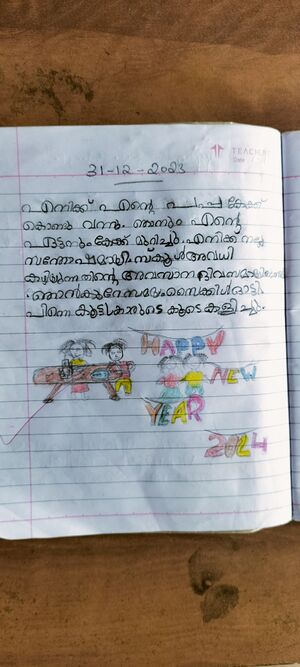 TEACH
Date
31-12-2023
എനിക്ക് എന്റെ പപ്പ കേക്ക്
കൊണ്ടു വന്നു. ഞാനും എന്റെ
കേക്ക് മുറിച്ചു. എനിക്ക് നല്ല
സന്തോഷമായി. സ്കൂൾ അവധി
കഴിയുന്നതിന്റെ അവസാന ദിവസമാ
ഞാൻ കുറേ സമയം സൈക്കിൾ ഓട്ടി.
പിന്നെ കൂട്ടുകാരുടെ കൂടെ കളിച്ചു.
HAPPY
NEW
YEAR
2024